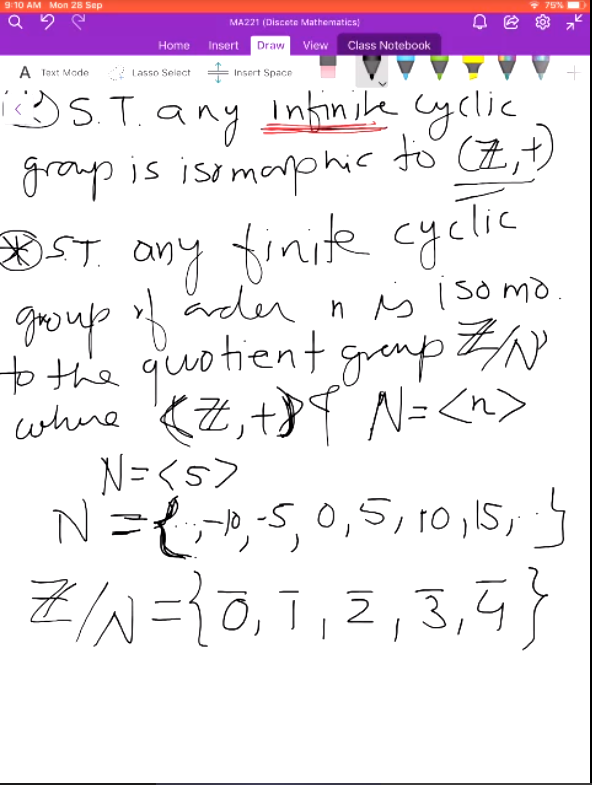 9:10 AM Mon 28 Sep
75%
MA221 (Discete Mathematics)
Home Insert Draw View Class Notebook
A Text Mode Lasso Select Insert Space
S.T. any infinite cyclic
group is isomorphic to (ℤ,+)
* S.T. any finite cyclic
group of order n is isomo.
to the quotient group ℤ/N
where (ℤ,+) & N=<n>
N=<5>
N={..,-10,-5,0,5,10,15,..}
ℤ/N={0̅,1̅,2̅,3̅,4̅}